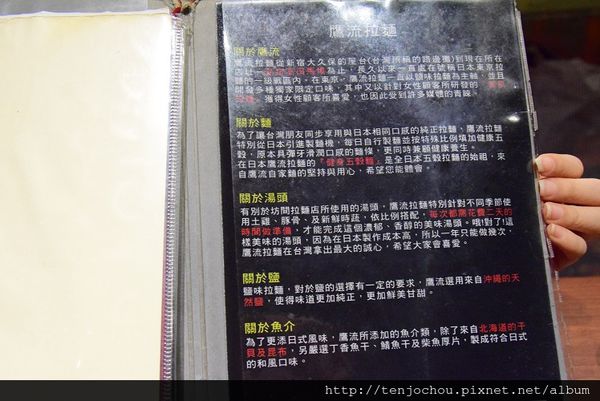 鷹流拉麵
關於鷹流
鷹流拉麵從新宿大久保的屋台(台灣所稱的路邊攤)到現在所在
為止，長久以來一直處在號稱日本東京拉
麵的一級戰區內。在東京，鷹流拉麵一直以鹽味拉麵為主軸，並且
開發多種獨家限定口味，其中又以針對女性顧客所研發的
獲得女性顧客所喜愛，也因此受到許多媒體的青睞。
關於麵
為了讓台灣朋友同步享用與日本相同口感的純正拉麵，鷹流拉麵
特別從日本引進製麵機，每日自行製麵並按特殊比例填加健康五
穀，原本具彈牙滑潤口感的麵條，更同時兼顧健康養生。
在日本鷹流拉麵的「健身五穀麵」是全日本五穀拉麵的始祖，來
自鷹流自家麵的堅持與用心，希望您能體會。
關於湯頭
有別於坊間拉麵店所使用的湯頭，鷹流拉麵特別針對不同季節使
用土雞、豚骨、及新鮮時蔬，依比例搭配，每次都需花費二天的
時間做準備，才能完成這個濃郁、香醇的美味湯頭。哦對了!這
樣美味的湯頭，因為在日本製作成本高，所以一年只能做幾次，
鷹流拉麵在台灣拿出最大的誠心，希望大家會喜愛。
關於鹽
鹽味拉麵，對於鹽的選擇有一定的要求，鷹流選用來自沖繩的天
然鹽，使得味道更加純正，更加鮮美甘甜。
關於魚介
為了更添日式風味，鷹流所添加的魚介類，除了來自北海道的干
貝及昆布，另嚴選丁香魚干、鯖魚干及柴魚厚片，製成符合日式
的和風口味。
http://tenjochou.pixnet.net/album